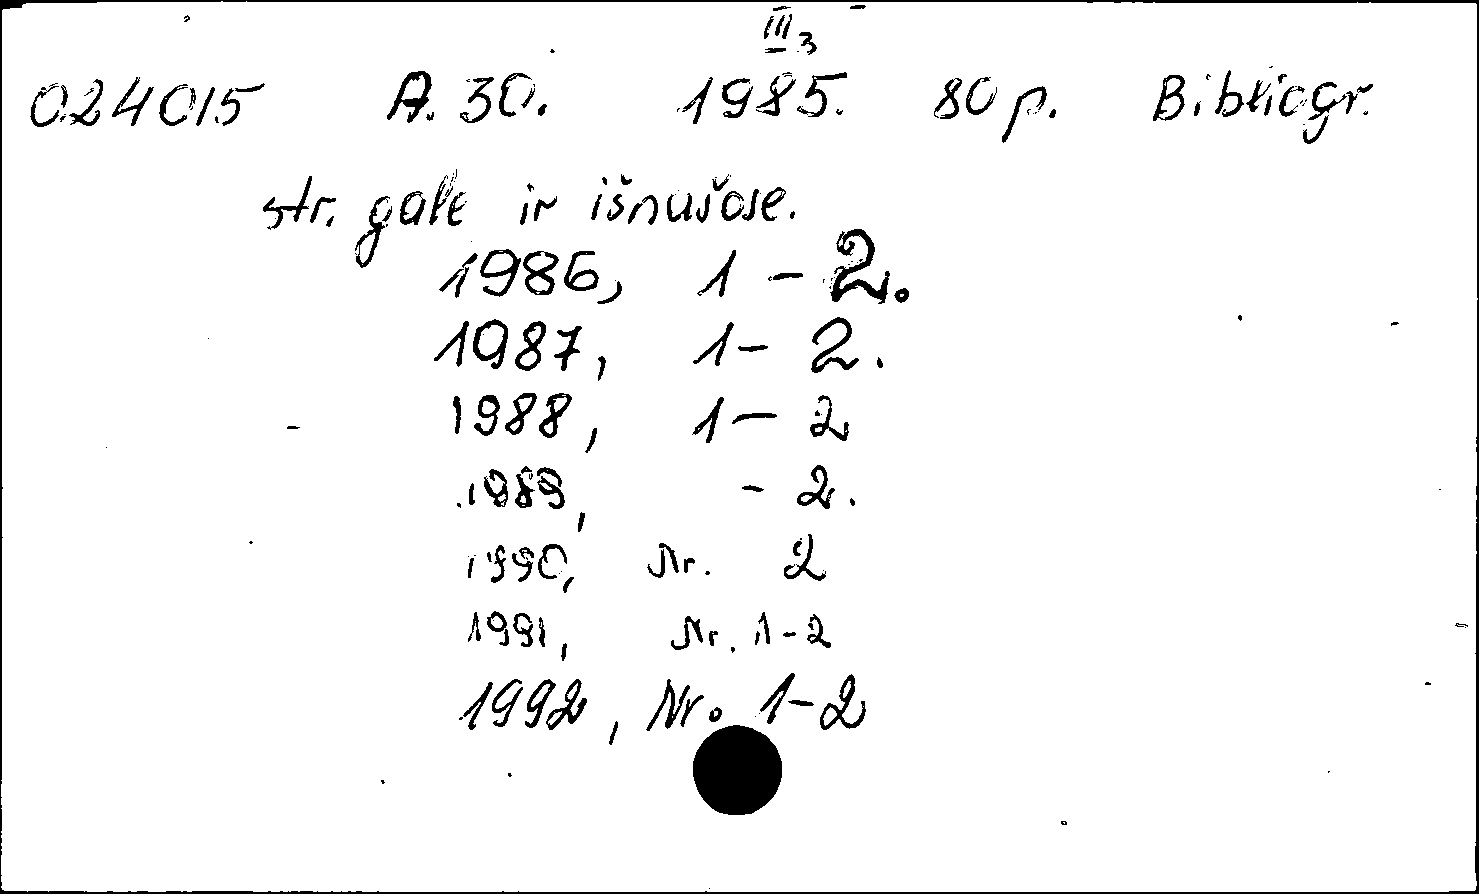 III 3
024015 A. 30. 1985. 80 p. Bibliogr.
str. gale ir išnašose.
1986, 1 - 2.
1987, 1 - 2.
1988, 1 - 2
1989, - 2.
1990, Nr. 2
1991, Nr. 1-2
1992, Nr. 1-2